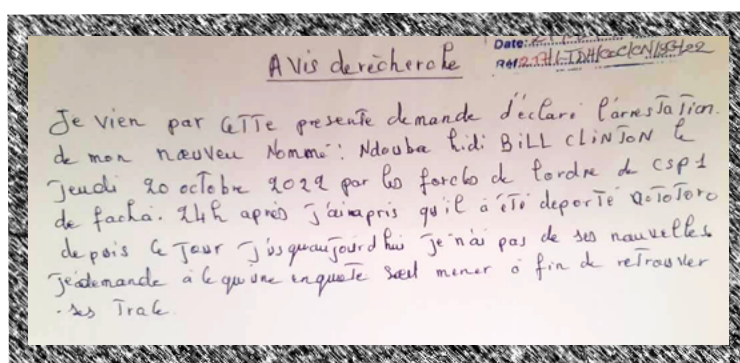 Date:
Avis derècherche
Réf
Je vien par CeTTe presente demande d'eclaré l'arresTaTion
de mon næuveu Nommé: Ndouba hidi BiLL CLiNTON le
jeudi 20 ocTobre 2022 par les forces de l'ordre de CSP1
de facha. 24h après j'ai apris qu'il à éTé deporTé
depuis Ce Jour j'usquaujourd'hui je n'ai pas de ses nauvelles
je demande à ce qu'une enqueTe soit mener à fin de reTrouver
ses Trace